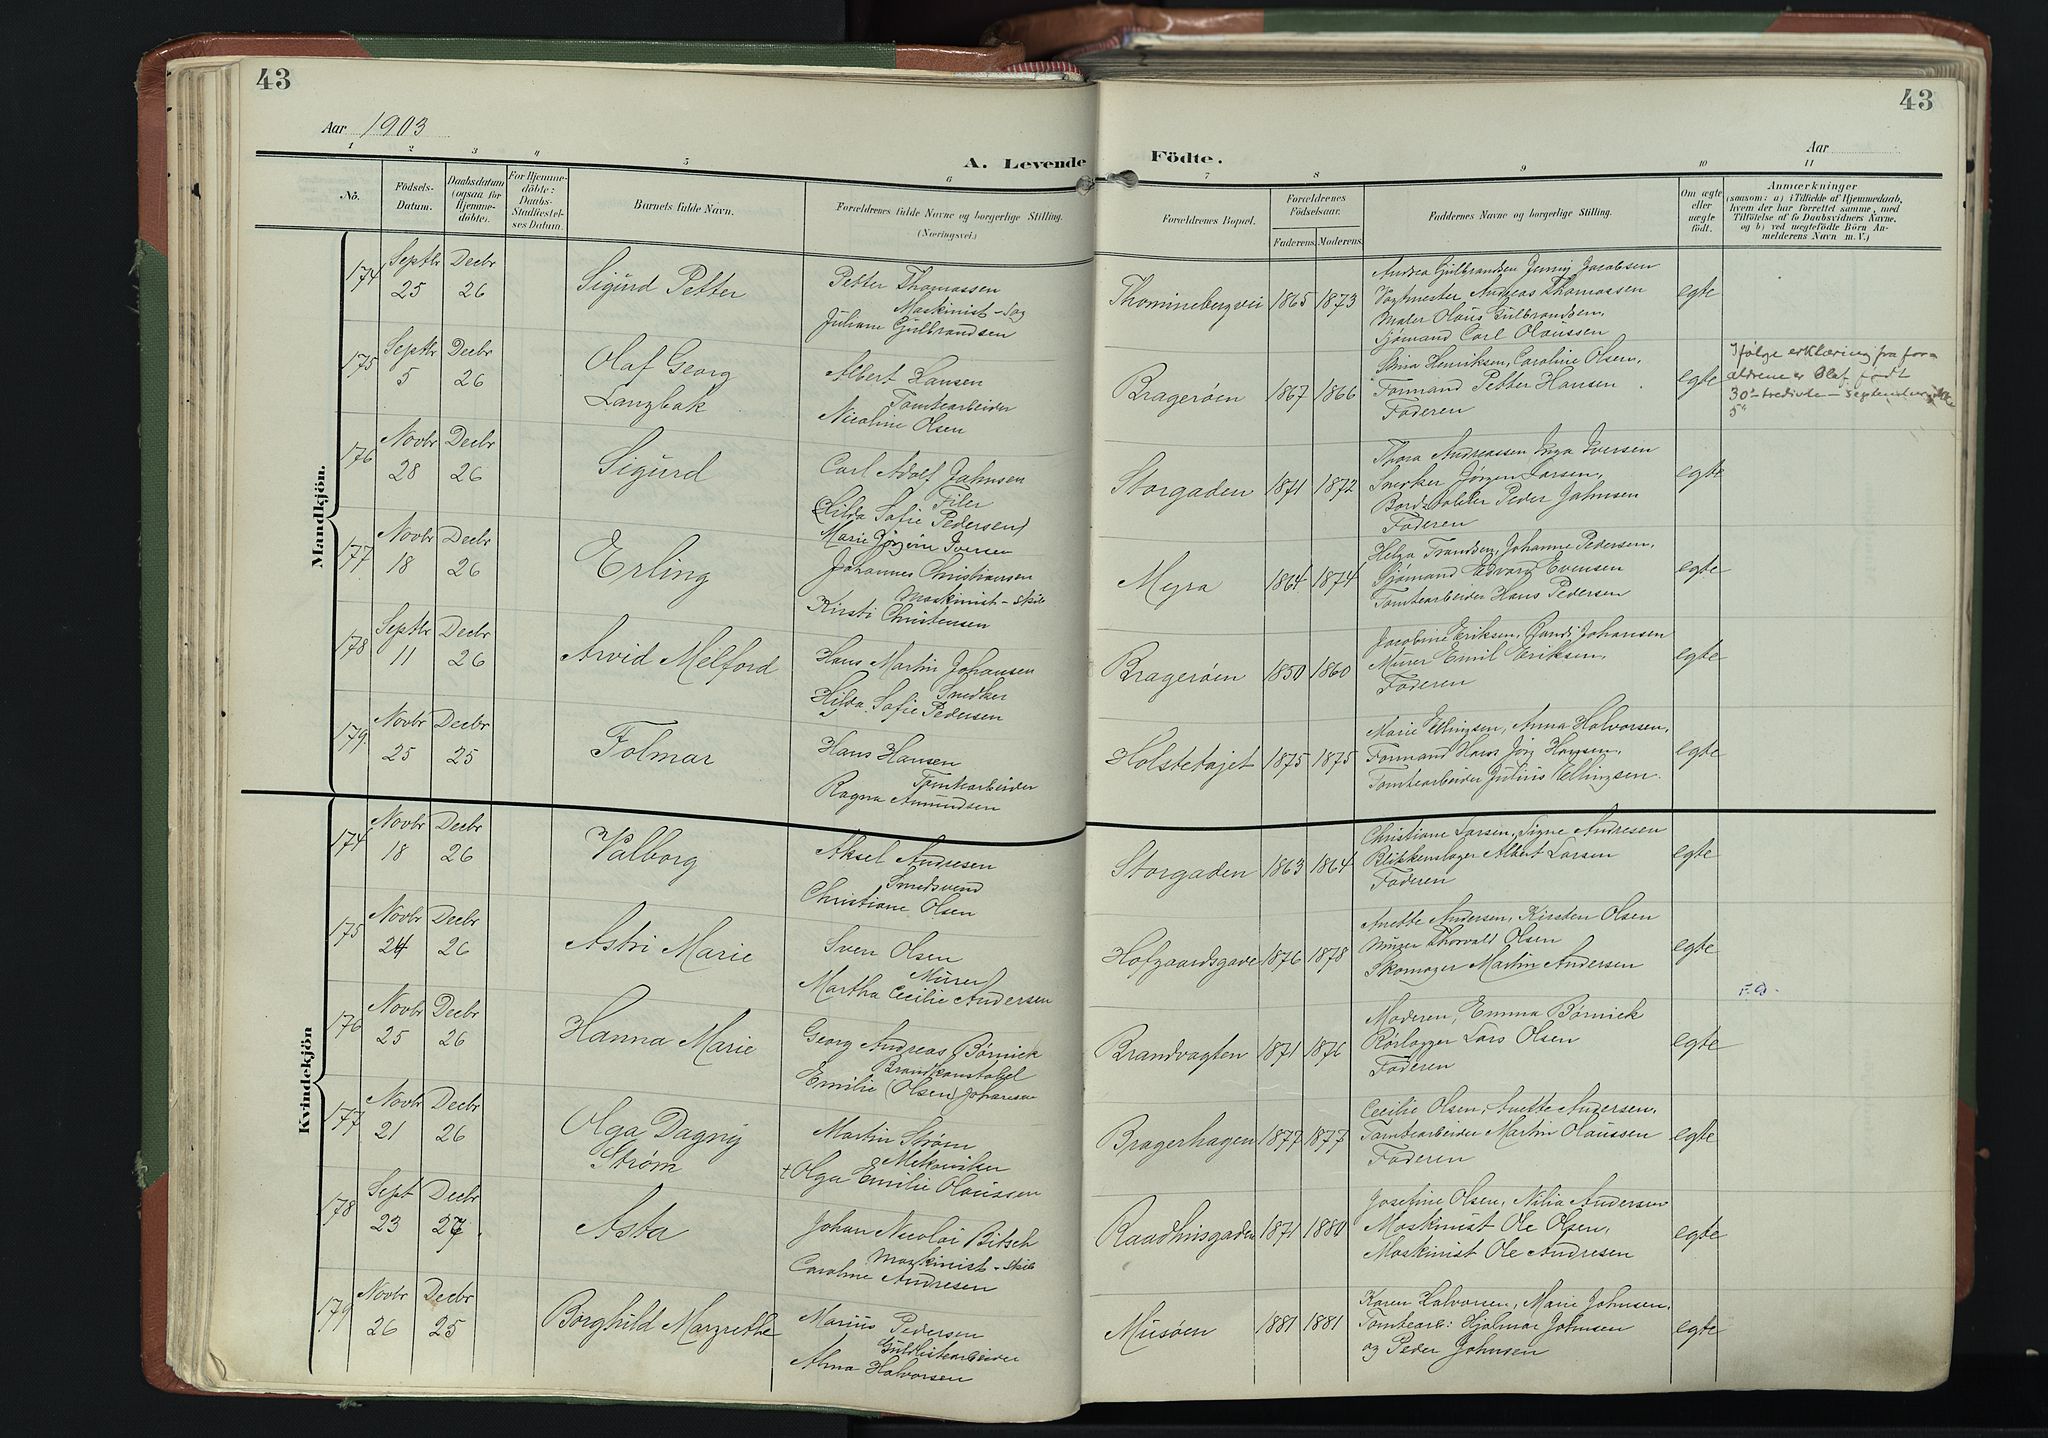 43
43
Aar 1903
Aar
A. Levende Födte.
1 2 3 4 5 6 7 8 9 10 11
No.
Födsels-
Datum.
Daabsdatum
(ogsaa for
Hjemme-
döbte).
For Hjemme-
döbte:
Daabs-
Stadfæstel-
ses Datum.
Barnets fulde Navn.
Forældrenes fulde Navne og borgerlige Stilling.
(Næringsvei.)
Forældrenes Bopæl.
Forældrenes
Födselsaar.
Faderens. Moderens.
Faddernes Navne og borgerlige Stilling.
Om ægte
eller
uægte
födt.
Anmærkninger
(saasom: a) i Tilfælde af Hjemmedaab,
hvem der har forrettet samme, med
Tilföielse af 6 Daabsvidners Navne.
og b) ved uægtefödte Börn An-
melderens Navn m. V.)
Mandkjön.
174 Septbr 25 Decbr 26 Sigurd Petter
Petter Thomassen
Maskinist - Sag
Juliane Gulbrandsen
Thominebergvei 1865 1873
Andrea Gulbrandsen Jenny Jacobsen
Vogtmester Andreas Thomassen
Maler Olaus Gulbrandsen,
Sjømand Carl Olaussen
egte
175 Septbr 5 Decbr 26 Olaf Georg
Langbak
Albert Hansen
Tomtearbeider
Nicoline Olsen
Bragerøen 1867 1866
Stina Henriksen, Caroline Olsen,
Formand Petter Hansen
Faderen
egte
Ifølge erklæring fra for-
ældrene er Olaf født
30 - tredivte - september ikke
5'
176 Novbr 28 Decbr 26 Sigurd
Carl Adolf Johnsen
Filer
(Hilda Sofie Pedersen)
Marie Jørgine Iversen
Storgaden 1871 1872
Thora Andreassen Inga Iversen
Snerker Jørgen Larsen,
Bordstabler Peder Johnsen
Faderen
egte
177 Novbr 18 Decbr 26 Erling
Johannes Christiansen
Maskinist - Skib
Kirsti Christensen
Myra 1864 1874
Helga Frandsen, Johanne Pedersen,
Sjømand Edvard Evensen
Tomtearbeider Hans Pedersen
egte
178 Septbr 11 Decbr 26 Arvid Melford
Hans Martin Johansen
Snedker
Hilda Sofie Pedersen
Bragerøen 1850 1860
Jacobine Eriksen, Randi Johansen
Murer Emil Eriksen,
Faderen
egte
179. Novbr 25 Decbr 25 Folmar
Hans Hansen
Tomtearbeider
Ragna Amundsen
Holstetøjet 1875 1875
Marie Ellingsen, Anna Halvorsen,
Formand Hans Jørg Hansen,
Tomtearbeider Julius Ellingsen.
egte
Kvindekjön
174 Novbr 18 Decbr 26 Valborg
Aksel Andresen
Smedsvend
Christiane Olsen
Storgaden 1863 1864
Christiane Larsen, Signe Andresen
Blikkenslager Albert Larsen
Faderen
egte
175 Novbr 24 Decbr 26 Astri Marie
Sven Olsen
Murer
Martha Cecilie Andersen
Hofgaardsgave 1876 1878
Anette Andersen, Kirsten Olsen
Murer Thorvald Olsen
Skomager Martin Andersen
egte
F.A.
176 Novbr 25 Decbr 26 Hanna Marie
Georg Andreas Børnick
Brandkonstabel
Emilie (Olsen) Johansen
Brandvagten 1871 1876
Moderen, Emma Børnick
Rørlægger Lars Olsen
Faderen
egte
177 Novbr 21 Decbr 26 Olga Dagny
Strøm
Martin Strøm
Mekaniker
+ Olga Emilie Olaussen
Bragerhagen 1877 1877
Cecilie Olsen, Anette Andersen,
Tomtearbeider Martin Olaussen
Faderen
egte
178 Sept 23 Decbr 27 Asta
Johan Nicolai Bitsch
Maskinist - Skib
Caroline Andresen
Raadhusgaden 1871 1880
Josefine Olsen, Nilia Andersen
Maskinist Ole Olsen,
Maskinist Ole Andresen
egte
179 Novbr 26 Decbr 25 Borghild Margrethe
Marius Pedersen
Guldlistearbeider
Alma Halvorsen
Musøen 1881 1881
Karen Halvorsen, Marie Johnsen,
Tomtearb: Hjalmar Johnsen
og Peder Johnsen
egte